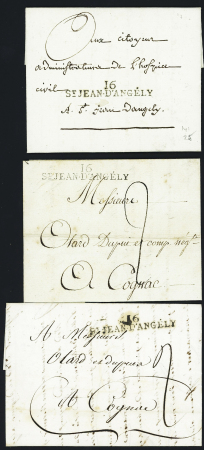 Aux citoyens
administrateurs de l'hospice
civil
16
ST JEAN-D'ANGÉLY
A St jean d'angely.
16
ST JEAN-D'ANGÉLY
Messieurs
Otard Dupui et comp. neg.ts
A Cognac
16
ST JEAN-D'ANGÉLY
A Messieurs
Otard et dupuis
A Cognac